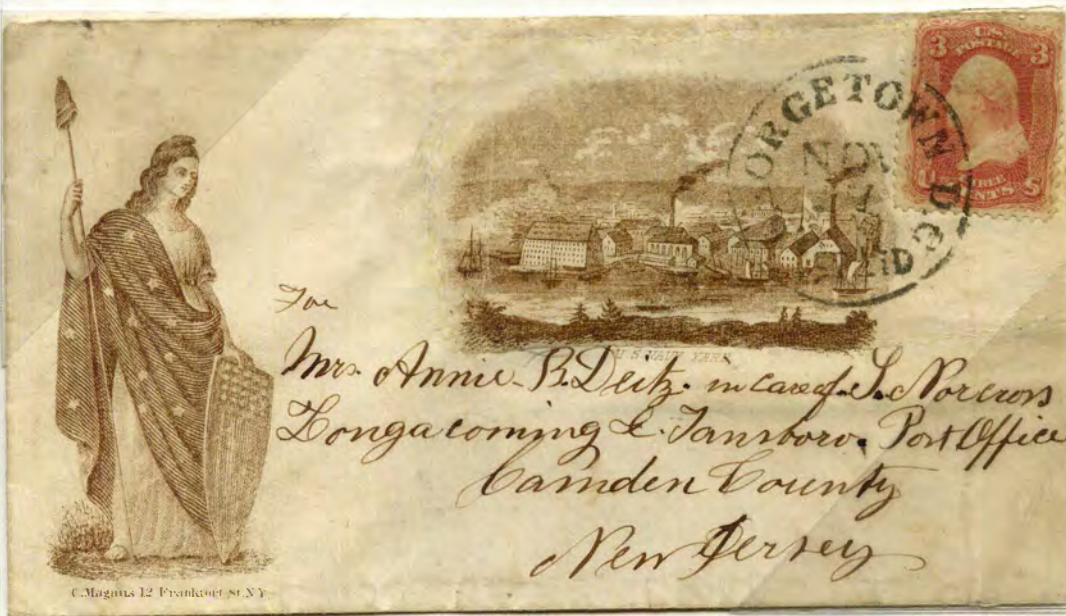 3 U.S. POSTAGE 3
U THREE CENTS S
GEORGETOWN D.C.
NOV
PAID
U.S. NAVY YARD
For
Mrs. Annie B. Deitz. in care of. S. Norcross
Longacoming &. Tansboro. Post Office
Camden County
New Jersey
C. Magnus 12 Frankfort St. N.Y